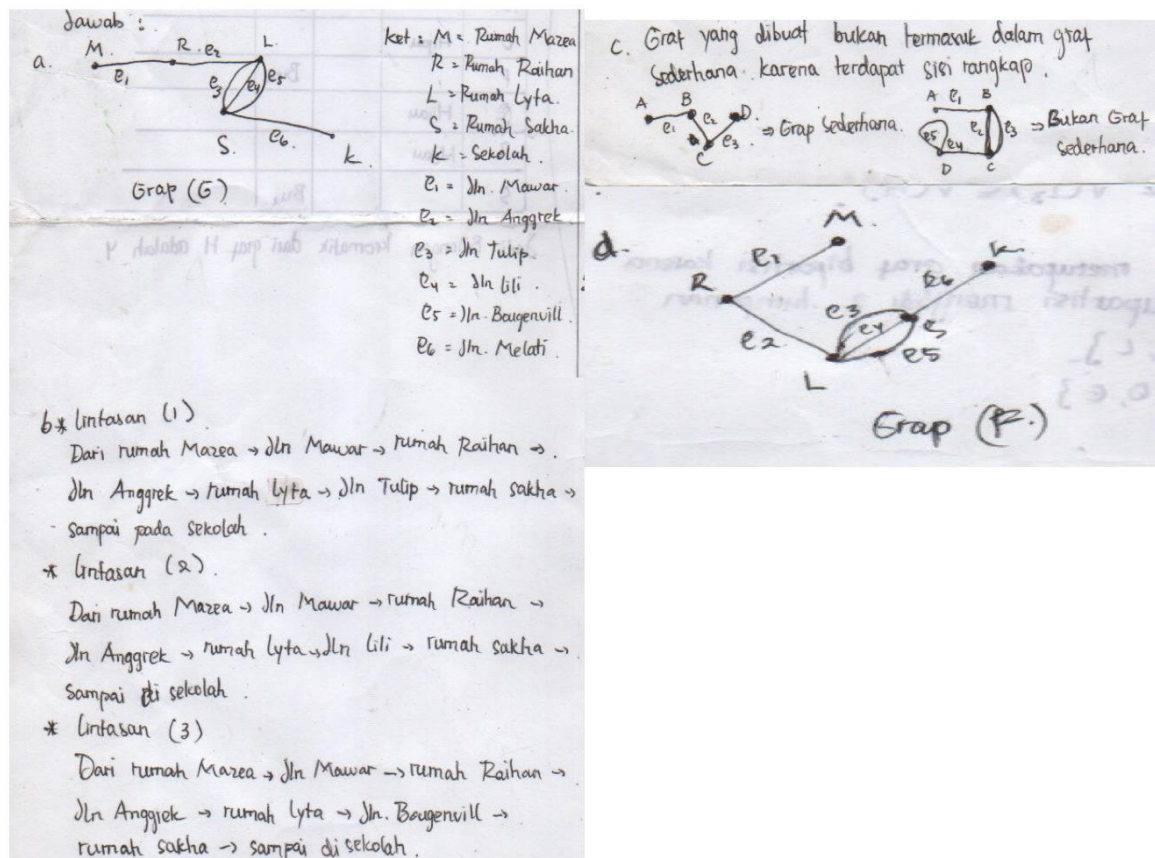 Jawab :
a.
M.
R.
e2
L.
e1
e3
e4
e5
S.
e6.
k.
Grap (G)
ket : M = Rumah Mazea
R = Rumah Raihan
L = Rumah Lyta
S = Rumah Sakha.
K = Sekolah.
e1 = Jln. Mawar.
e2 = Jln Anggrek
e3 = Jln Tulip
e4 = Jln Lili.
e5 = Jln. Bougenvill.
e6 = Jln. Melati.
b* lintasan (1)
Dari rumah Mazea → Jln Mawar → rumah Raihan →
Jln Anggrek → rumah Lyta → Jln Tulip → rumah sakha →
sampai pada sekolah.
* lintasan (2).
Dari rumah Mazea → Jln Mawar → rumah Raihan →
Jln Anggrek → rumah lyta → Jln Lili → rumah sakha →
sampai di sekolah.
* lintasan (3)
Dari rumah Mazea → Jln Mawar → rumah Raihan →
Jln Anggrek → rumah lyta → Jln. Bougenvill →
rumah sakha → sampai di sekolah.
c. Graf yang dibuat bukan termasuk dalam graf
sederhana. karena terdapat sisi rangkap.
A
B
D.
e1
e2
e3
C
⇒ Grap Sederhana.
A
e1
B
e2
e3
e5
e4
D
C
⇒ Bukan Graf
sederhana.
d.
M.
e1
K.
R
e6
e3
e4
S
e2
e5
L
Grap (F.)
kromatik dari grap H adalah 4
merupakan grap bipartisi karena